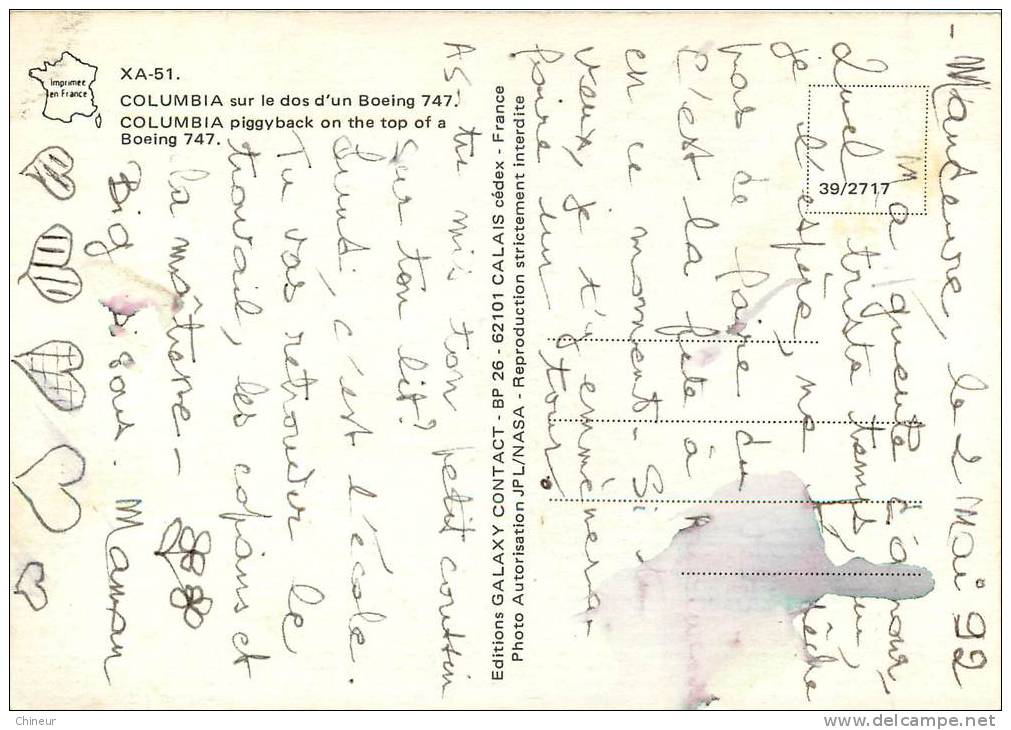 Imprimée
en France
XA-51.
COLUMBIA sur le dos d'un Boeing 747.
COLUMBIA piggyback on the top of a
Boeing 747.
Editions GALAXY CONTACT - BP 26 - 62101 CALAIS cédex - France
Photo Autorisation JPL/NASA - Reproduction strictement interdite
39/2717
- Mandeure, le 2 Mai 92
Ma quente d'amour
Quel triste temps
je l'espère ne pêche
pas de faire du
C'est la fête à
en ce moment - Si
veux, je t'y emmènerai
faire un tour.
As-tu mis ton petit coussin
sur ton lit?
Lundi c'est l'école.
Tu vas retrouver le
travail, les copains et
la maîtresse -
Big bisous. Maman
Chineur
www.delcampe.net